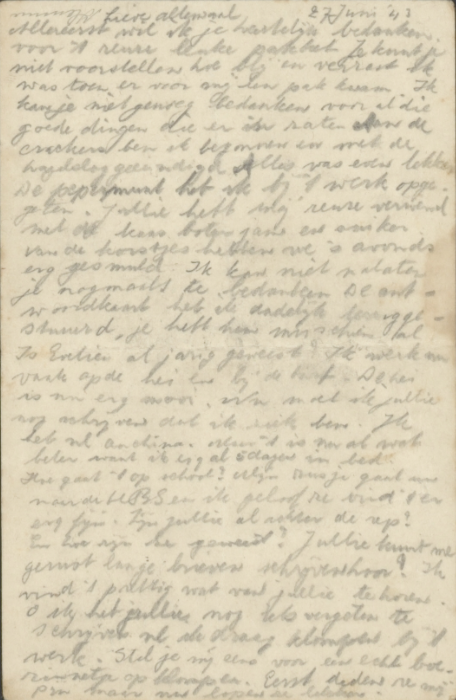 Lieve allemaal 27 Juni '43
Allereerst wil ik je hartelijk bedanken
voor 't reuze leuke pakket. Je kunt je
niet voorstellen hoe blij en verrast ik
was toen er voor mij een pak kwam. Ik
kan je niet genoeg bedanken voor al die
goede dingen die er in zaten. Aan de
crackers ben ik begonnen en met de
geëindigd. Alles was even lekker
De pepermunt heb ik bij 't werk opge-
geten. Jullie hebt mij reuze verwend
met de kaas, boter, jam en suiker
van de korstjes hebben we 's avonds
erg gesmuld. Ik kan niet nalaten
je nogmaals te bedanken. De ant-
woordkaart heb ik dadelijk terugge-
stuurd, je hebt hem misschien al
Is Evelien al jarig geweest? Ik werk nu
vaak op de hei en bij de De hei
is nu erg mooi. Nu moet ik jullie
nog schrijven dat ik ziek ben. Ik
heb nl angina. Maar 't is nu al wat
beter want ik lig al 5 dagen in bed.
Hoe gaat 't op school? Mijn zusje gaat nu
naar de HBS en ik geloof ze vind 't er
erg fijn. Zijn jullie al achter de rep?
En hoe zijn ze geweest? Jullie kunt me
gerust lange brieven schrijven hoor! Ik
vind 't prettig wat van jullie te horen.
O ik heb jullie nog iets vergeten te
schrijven nl ik draag klompen bij 't
werk. Stel je mij eens voor een echt boe-
rinnetje op klompen. Eerst deden ze mij
pijn maar nu lopen ze lekker